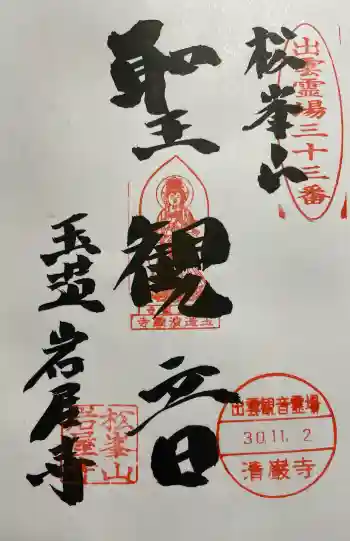 松峯山
出雲霊場三十三番
聖観音
玉造岩屋寺
玉造清巌寺
松峯山
岩屋寺
出雲観音霊場
30.11.2
清巌寺